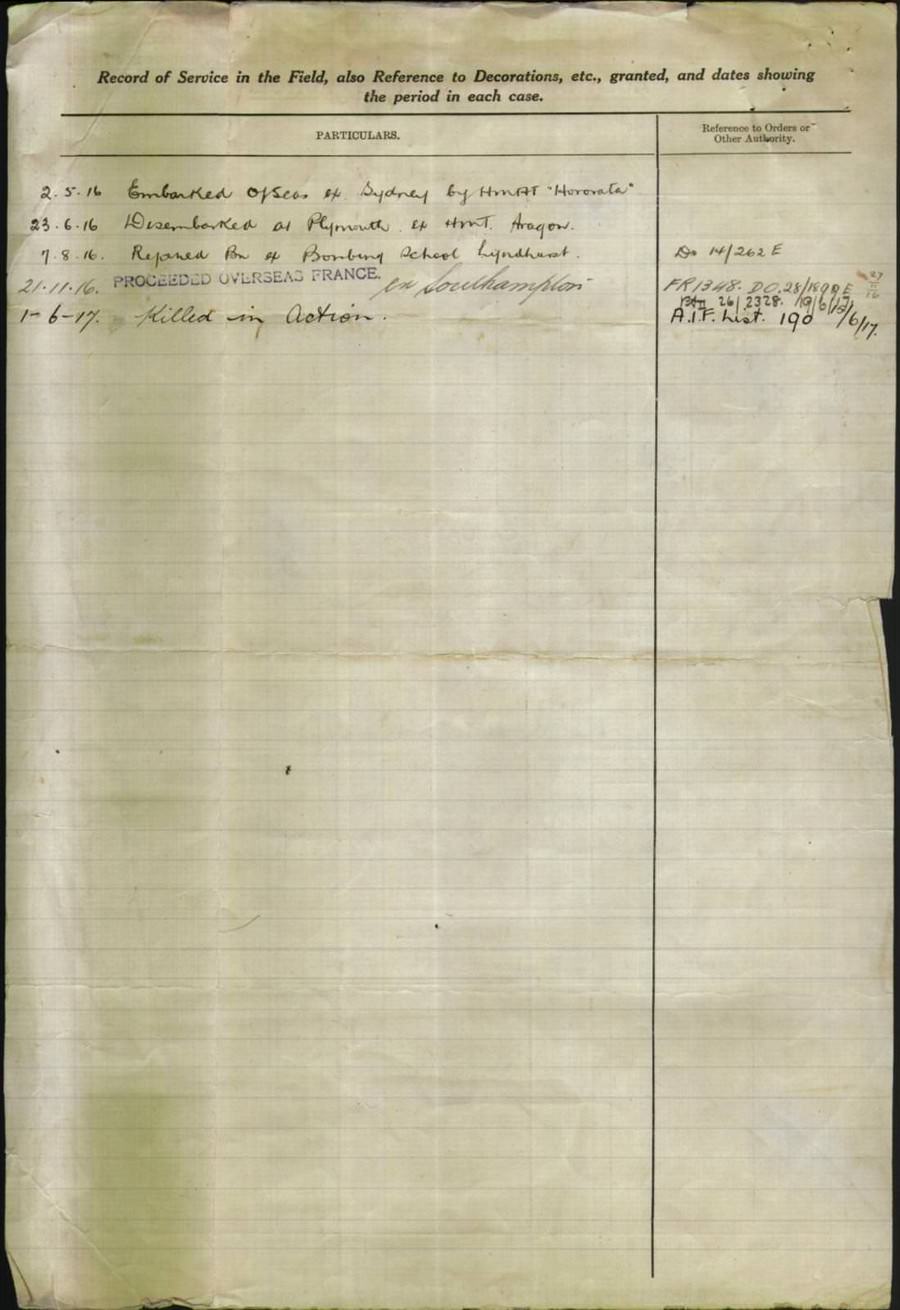 Record of Service in the Field, also Reference to Decorations, etc., granted, and dates showing
the period in each case.
PARTICULARS.
Reference to Orders or
Other Authority.
2.5.16 Embarked O/Seas ex Sydney by HMAT "Hororata"
23.6.16 Disembarked at Plymouth ex HMT. Aragon.
7.8.16. Rejoined Bn ex Bombing School Lyndhurst. Do 14/262 E
21.11.16. PROCEEDED OVERSEAS FRANCE. ex Southampton FR1348. D.O.28/
26/2328.
1-6-17. Killed in Action. A.I.F. List. 190 /6/17.